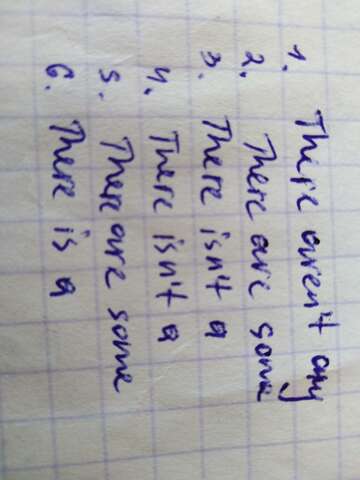 1. There aren't any
2. There are some
3. There isn't a
4. There isn't a
5. There are some
6. There is a